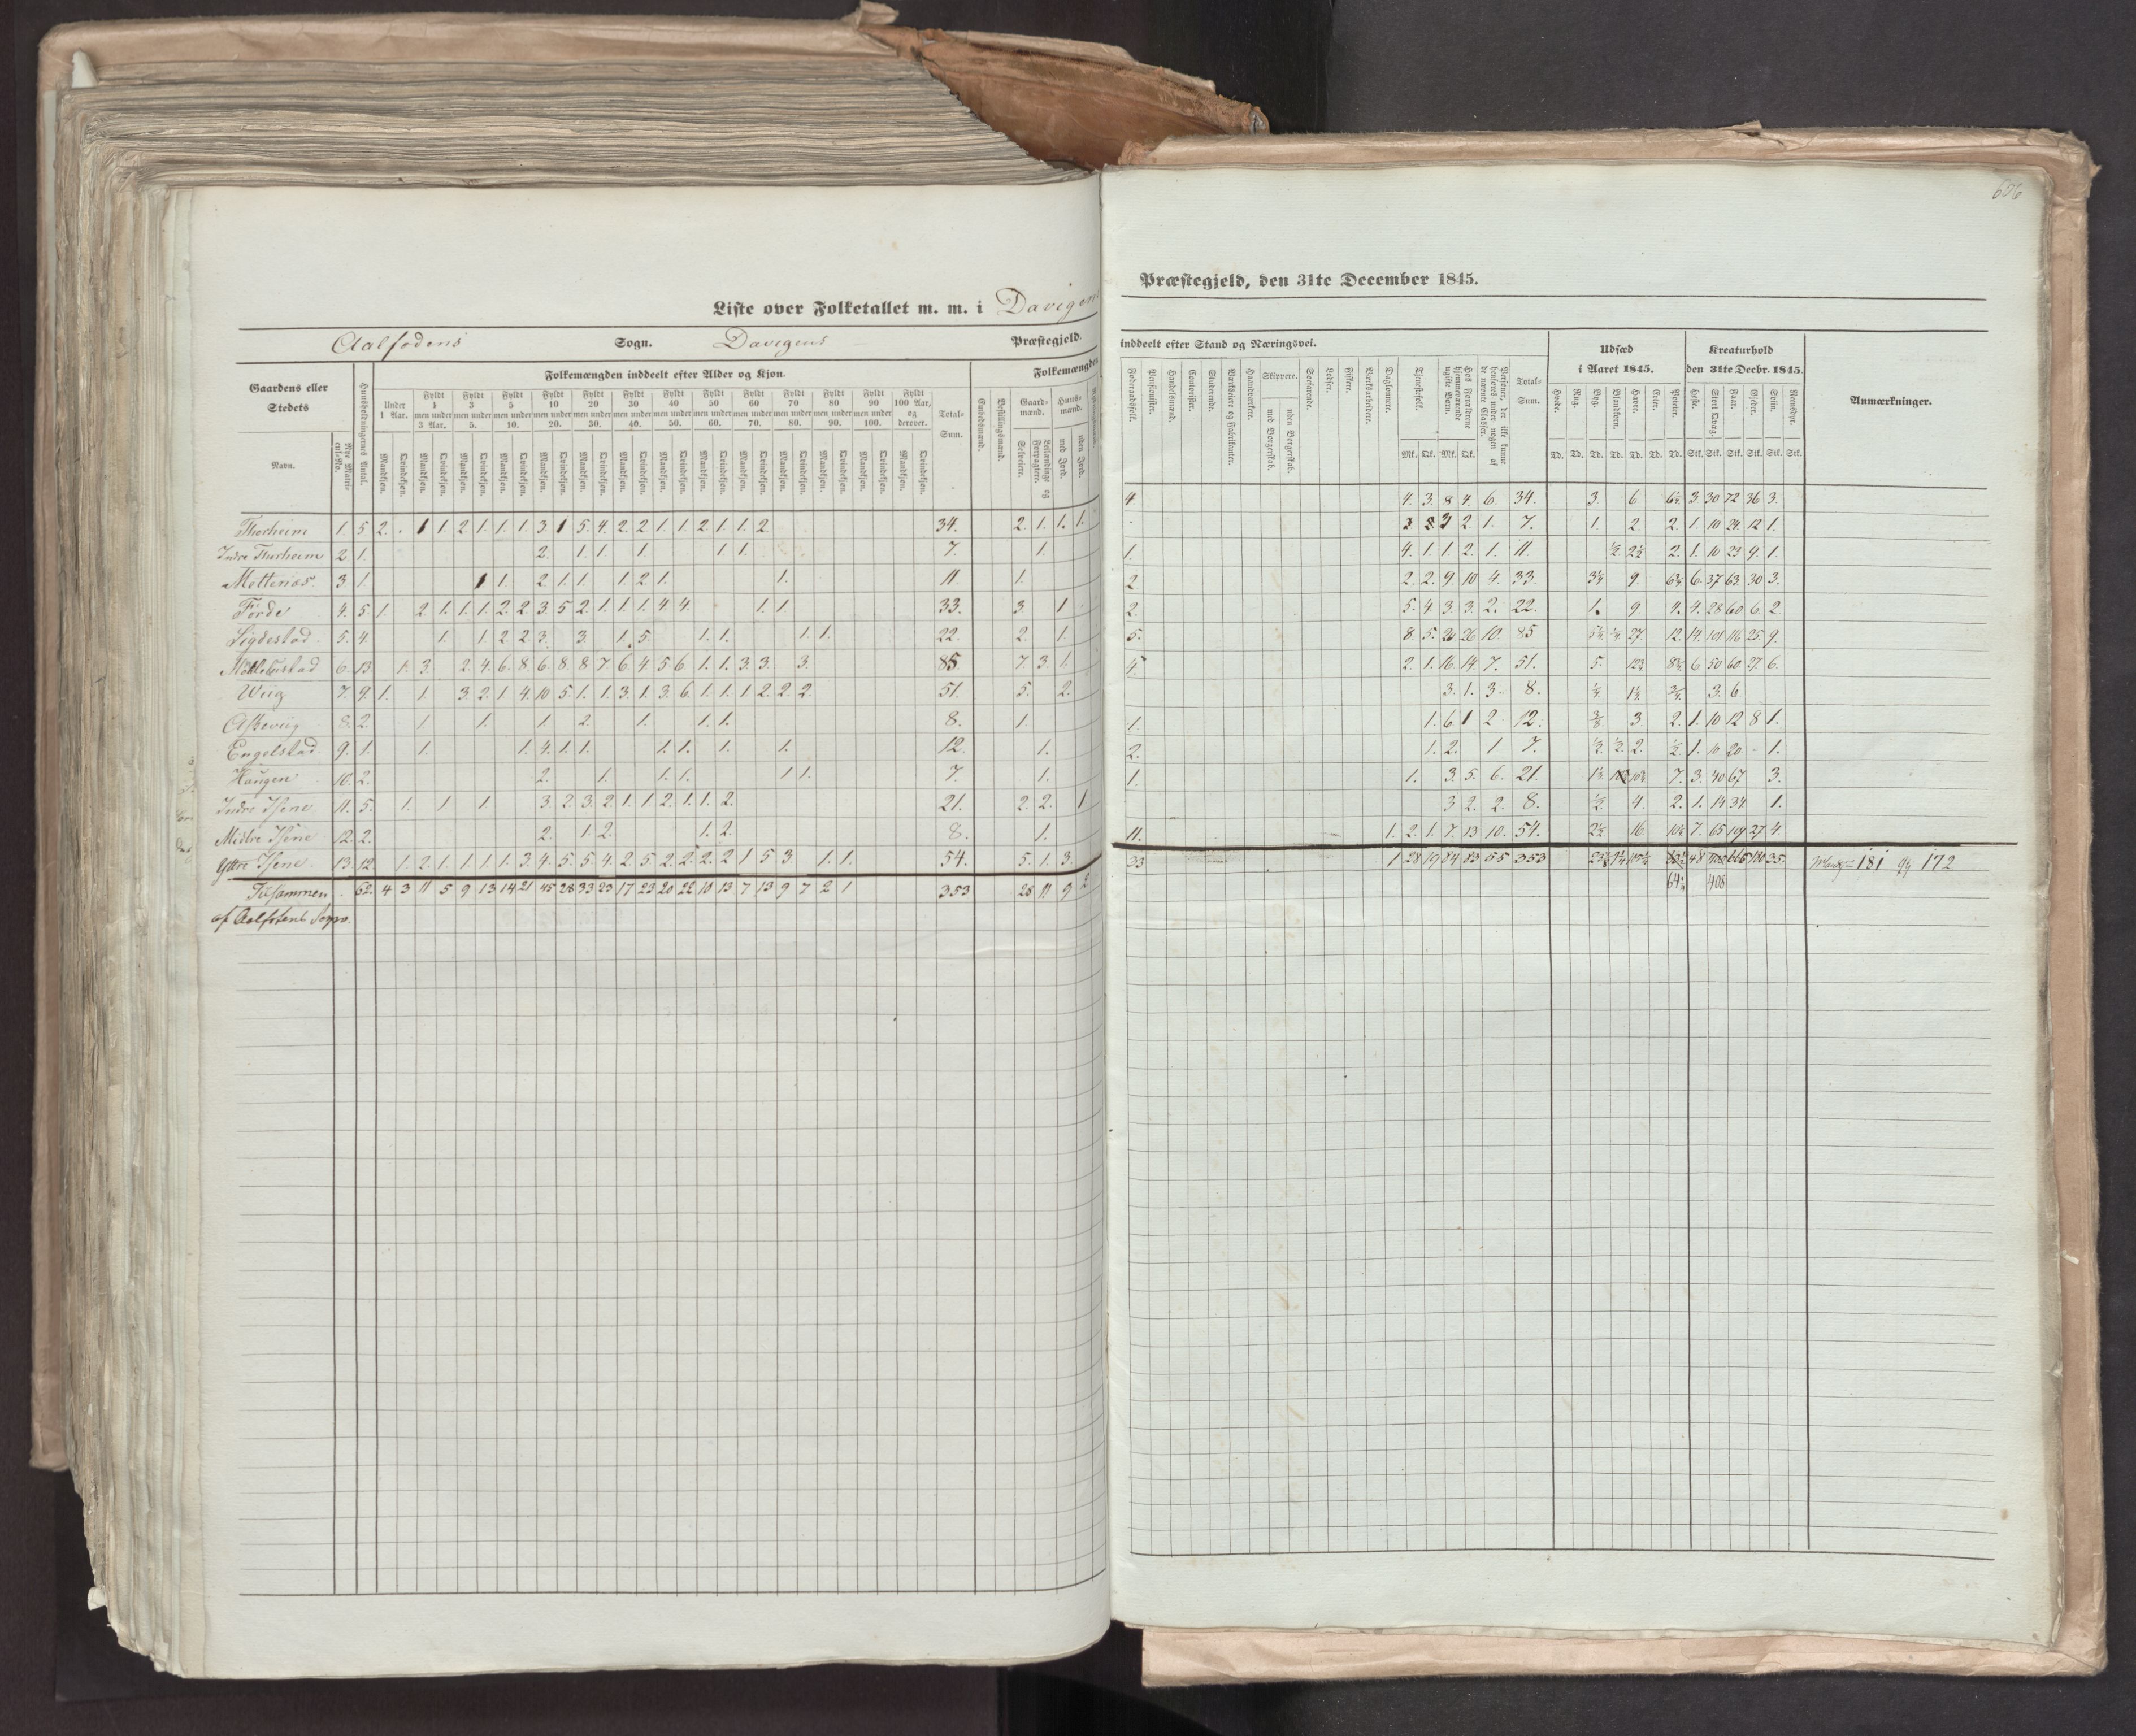 Liste over Folketallet m. m. i Davigens
Aalfodens Sogn. Davigens Præstegjeld.
Gaardens eller Stedets Navn.
Nye Matricul-No.
Huusholdningernes Antal.
Folkemængden inddeelt efter Alder og Kjøn.
Folkemængden
Under 1 Aar. Fyldt 1 men under 3 Aar. Fyldt 3 men under 5. Fyldt 5 men under 10. Fyldt 10 men under 20. Fyldt 20 men under 30. Fyldt 30 men under 40. Fyldt 40 men under 50. Fyldt 50 men under 60. Fyldt 60 men under 70. Fyldt 70 men under 80. Fyldt 80 men under 90. Fyldt 90 men under 100. Fyldt 100 Aar, og derover. Total-Sum.
Mandkjøn. Qvindekjøn. Mandkjøn. Qvindekjøn. Mandkjøn. Qvindekjøn. Mandkjøn. Qvindekjøn. Mandkjøn. Qvindekjøn. Mandkjøn. Qvindekjøn. Mandkjøn. Qvindekjøn. Mandkjøn. Qvindekjøn. Mandkjøn. Qvindekjøn. Mandkjøn. Qvindekjøn. Mandkjøn. Qvindekjøn. Mandkjøn. Qvindekjøn. Mandkjøn. Qvindekjøn. Mandkjøn. Qvindekjøn.
Embedsmænd. Bestillingsmænd. Gaardmænd. Selveiere. Leilændinge og Forpagtere. Huusmænd. med Jord. uden Jord.
Thorheim 1. 5 2. . 1 1. 2 1. 1. 1. 3 1 5. 4. 2 2 1. 1. 2 1. 1. 2 34. 2. 1. 1. 1.
Indre Thorheim 2 1. 2. 1. 1. 1. 1 1. 7. 1.
Mettenæs 3 1. 1 1. 2 1. 1. 1. 2 1. 1. 11 1.
Førde 4. 5 1. 2 1. 1. 1. 2 2 3 5 2. 1. 1. 1. 4. 4. 1. 1. 33. 3 1
Sigdestad 5. 4. 1. 1. 2 2. 3. 3. 1. 5. 1. 1. 1. 1. 22. 2. 1.
6. 13 1. 3. 2. 4. 6. 8. 6. 8. 8 7 6 4 5 6 1. 1. 3 3. 3. 85. 7. 3. 1.
Wiig 7. 9. 1. 1 3. 2. 1 4. 10 5. 1. 1. 3. 1. 3. 6. 1. 1. 1 2. 2. 2. 51. 5. 2.
8. 2. 1. 1. 1. 2. 1. 1. 1. 8. 1.
Engelstad 9. 1. 1. 1. 4. 1. 1. 1. 1. 1. 1. 12. 1.
Haugen 10. 2. 2. 1. 1. 1. 1 1. 7. 1.
Indre Isene 11. 5. 1. 1 1. 3. 2. 3. 2. 1. 1. 2. 1. 1. 2. 21. 2. 2. 1
Midtre Isene 12. 2. 2. 1. 2. 1. 2. 8. 1.
Yttre Isene 13. 12 1. 2. 1. 1. 1. 1. 3. 4. 5. 5. 4. 2 5. 2. 2. 2. 2 1 5 3 1. 1. 54. 5. 1. 3.
Tilsammen 62. 4 3 11 5 9 13 14 21 45 28 33 23 17 23 20 22 10 13 7 13 9 7 2 1 353 28 11 9 2
af Aalfotens Sogn.
606
Præstegjeld, den 31te December 1845.
inddeelt efter Stand og Næringsvei.
Udsæd i Aaret 1845.
Kreaturhold den 31te Decbr. 1845.
Anmærkninger.
Føderaadsfolk. Pensionister. Handelsmænd. Contorister. Studerende. Værkseiere og Fabrikanter. Haandværkere. Skippere. med Borgerskab. uden Borgerskab. Søefarende. Lodser. Fiskere. Værksarbeidere. Daglønnere. Tjenestefolk. Hos Forældrene hjemmeværende ugifte Børn. Personer, der ikke kunne henføres under nogen af de nævnte Classer. Total-Sum.
Hvede. Rug. Byg. Blandkorn. Havre. Erter. Poteter. Heste. Stort Qvæg. Faar. Gjeder. Sviin. Rensdyr.
Mk. Qk. Mk. Qk. Td. Td. Td. Td. Td. Td. Td. Stk. Stk. Stk. Stk. Stk. Stk.
4 4. 3. 8 4. 6. 34. 3. 6 6½ 3. 30 72 36 3.
2 1. 7. 1. 2. 2. 1. 10 24. 12 1.
1. 4. 1. 1. 2. 1. 11. ½ 2½ 2. 1. 10 23 9 1.
2 2. 2. 9. 10 4. 33. 9. 6. 37 63. 30 3.
2. 5. 4 3. 3. 2. 22. 1. 9 4. 4. 28 60 6. 2
5. 8. 5. 26 26 10. 85 27. 12. 14. 101 116 25. 9.
4. 2. 1. 16 14. 7. 51. 5. 6 50 60 27 6.
3. 1. 3. 8. 3. 6
1. 1. 6 1 2 12. 3 2. 1. 10 12 8 1.
2. 1. 2. 1 7. ½ ½ 2. ½ 1. 10 20 - 1.
1. 1. 3. 5. 6. 21. 7. 3. 40 67 3.
3 2. 2. 8. ½ 4. 2. 1. 14 34 1.
11. 1. 2. 1. 7. 13 10. 54. 16 7. 65 109 27 4.
33 1 28 19 84 83 55 353 48 35.
408
181 172